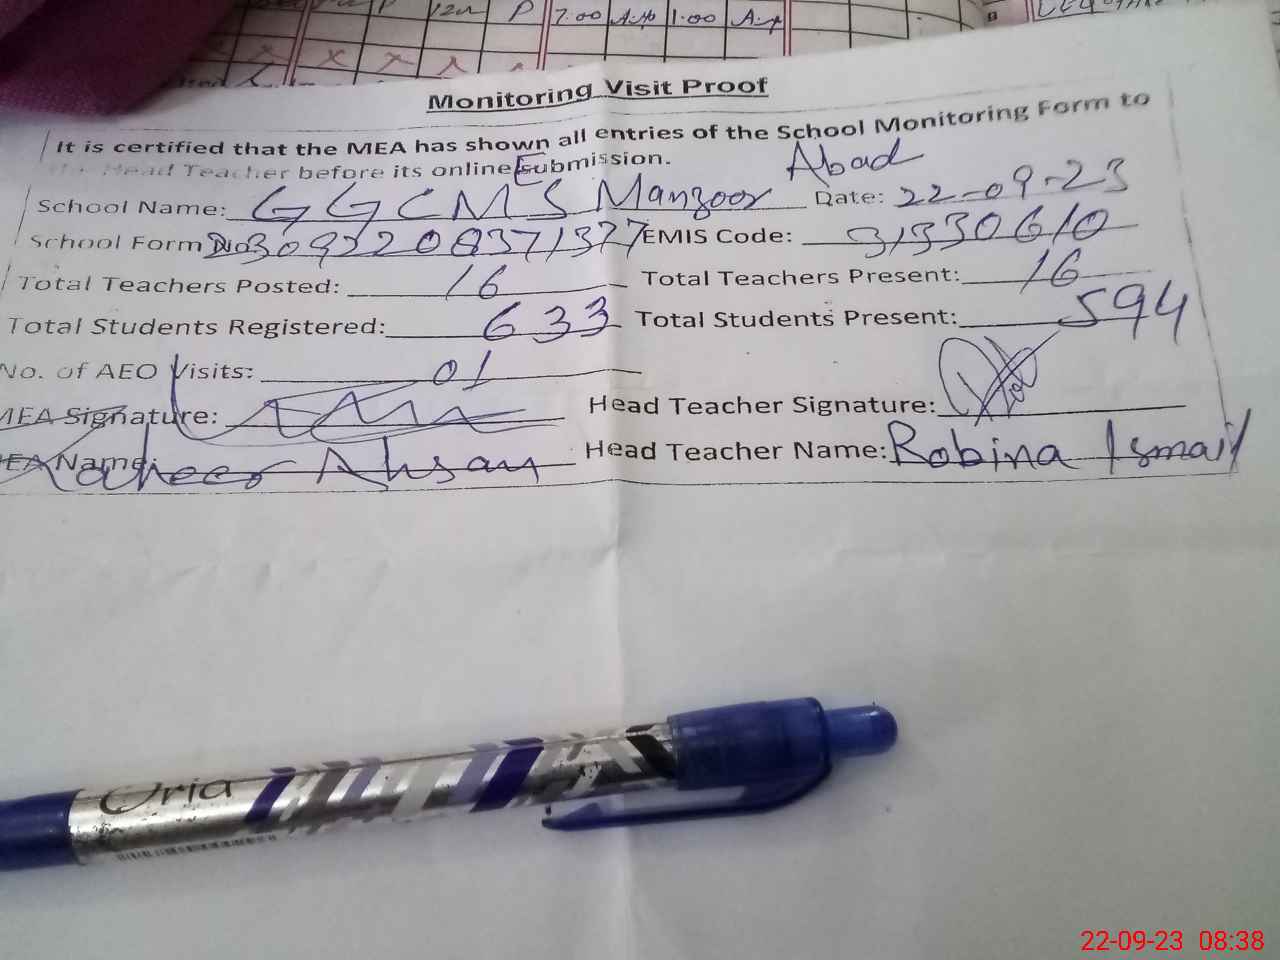 12m P 7:00 A.M 1:00
Monitoring Visit Proof
It is certified that the MEA has shown all entries of the School Monitoring Form to
Head Teacher before its online Submission.
School Name: GGCMS Manzoor Abad Date: 22-09-23
School Form No: EMIS Code: 31330610
Total Teachers Posted: 16 Total Teachers Present: 16
Total Students Registered: 633 Total Students Present: 594
No. of AEO Visits: 01
MEA Signature: Head Teacher Signature:
MEA Name: Ahsan Head Teacher Name: Robina Ismail
Oria
22-09-23 08:38